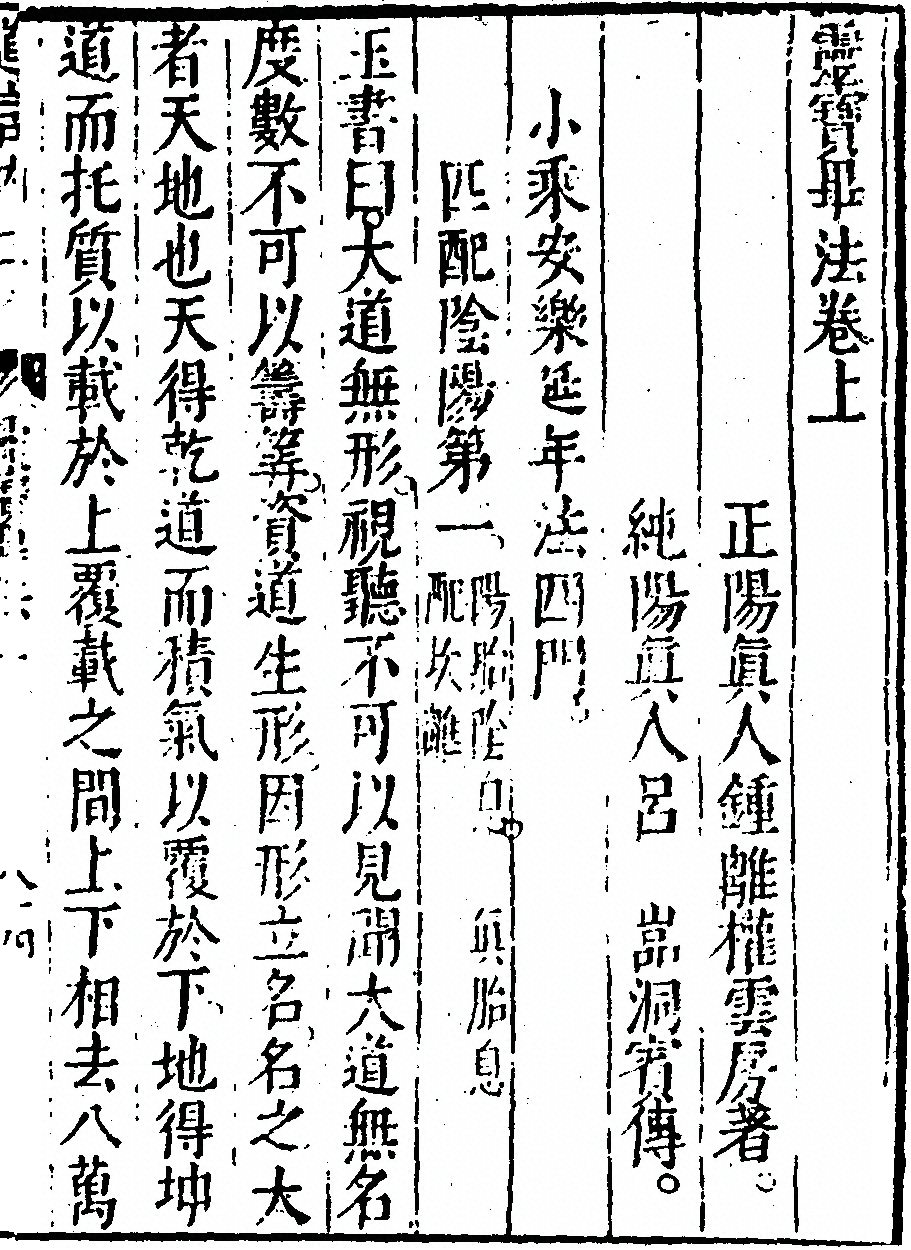 靈寶畢法卷上
正陽眞人鍾離權雲房著。
純陽眞人呂　嵓洞賓傳。
小乘安樂延年法四門
匹配陰陽第一
陽胎陰息　眞胎息
配坎離
玉書曰。大道無形視聽不可以見聞大道無名
度數不可以籌筭資道生形因形立名名之大
者天地也天得乾道而積氣以覆於下地得坤
道而托質以載於上覆載之間上下相去八萬